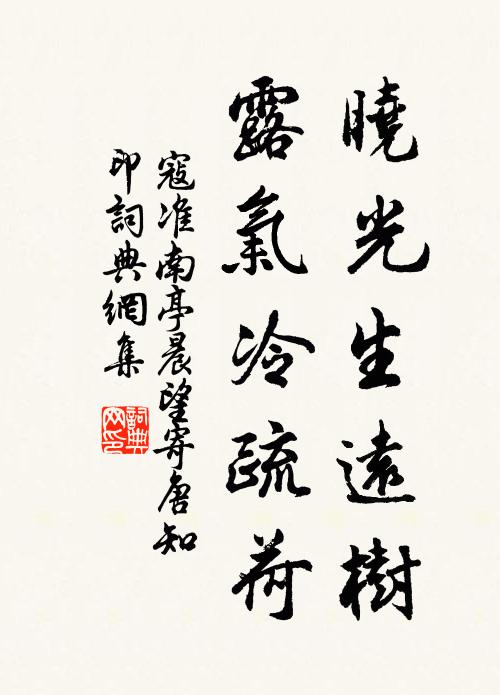 曉光生遠樹
露氣冷疏荷
寇准南亭晨望寄唐知
印詞典網集
詞典
网印